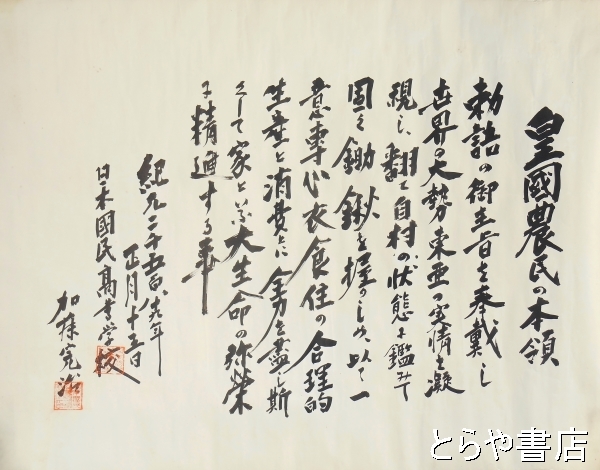 皇國農民の本領
勅語の御主旨を奉戴し
世界の大勢東亜の実情を凝
視し翻て自村の状態に鑑みて
固く鋤鍬を握りしめ以て一
意専心衣食住の合理的
生産と消費とに全力を盡し斯
くして家と云ふ大生命の弥栄
に精通する事
紀元二千五百九十九年
正月十五日
日本國民高等学校
加藤完治
とらや書店